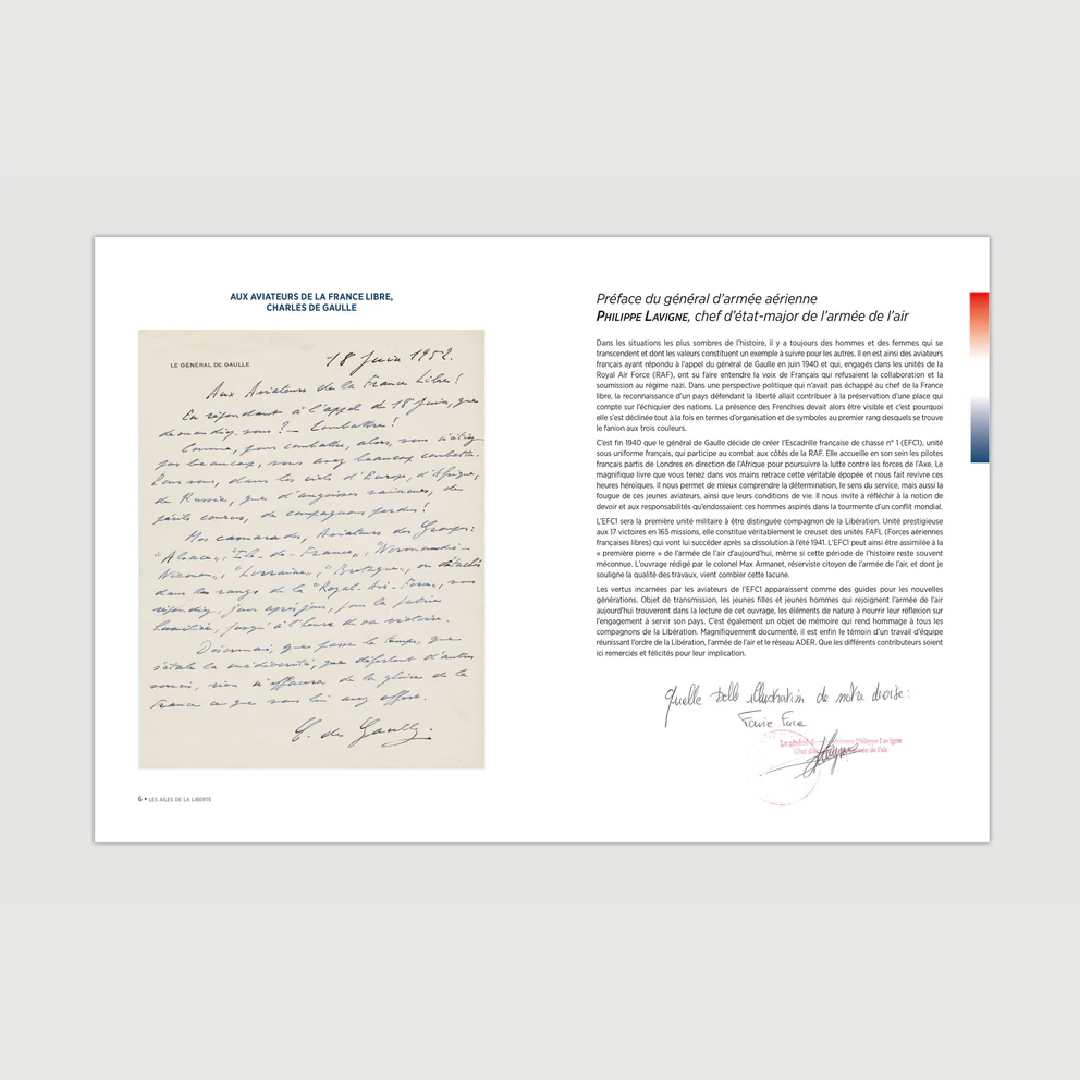 AUX AVIATEURS DE LA FRANCE LIBRE,
CHARLES DE GAULLE
LE GÉNÉRAL DE GAULLE
18 Juin 1952.
Aux Aviateurs de la France Libre!
En répondant à l'appel du 18 Juin, que
demandiez-vous? — Combattre!
Comme, pour combattre, alors, vous n'étiez
pas beaucoup, vous avez beaucoup combattu.
Pour vous, dans les ciels d'Europe, d'Afrique,
de Russie, que d'angoisses vaincues, de
périls courus, de compagnons perdus!
Mes camarades, Aviateurs des Groupes:
"Alsace", "Ile-de-France", "Normandie-
Niemen", "Lorraine", "Bretagne", ou détachés
dans les rangs de la "Royal-Air-Force", vous
répondiez, jour après jour, pour la patrie
humiliée, jusqu'à l'heure de sa victoire.
Désormais, que passe le temps, que
s'étale la médiocrité, que défilent d'autres
soucis, rien n'effacera de la gloire de la
France ce que vous lui avez offert.
C. de Gaulle.
6 • LES AILES DE LA LIBERTÉ
Préface du général d'armée aérienne
PHILIPPE LAVIGNE, chef d'état-major de l'armée de l'air
Dans les situations les plus sombres de l'histoire, il y a toujours des hommes et des femmes qui se
transcendent et dont les valeurs constituent un exemple à suivre pour les autres. Il en est ainsi des aviateurs
français ayant répondu à l'appel du général de Gaulle en juin 1940 et qui, engagés dans les unités de la
Royal Air Force (RAF), ont su faire entendre la voix de Français qui refusaient la collaboration et la
soumission au régime nazi. Dans une perspective politique qui n'avait pas échappé au chef de la France
libre, la reconnaissance d'un pays défendant la liberté allait contribuer à la préservation d'une place qui
compte sur l'échiquier des nations. La présence des Frenchies devait alors être visible et c'est pourquoi
elle s'est déclinée tout à la fois en termes d'organisation et de symboles au premier rang desquels se trouve
le fanion aux trois couleurs.
C'est fin 1940 que le général de Gaulle décide de créer l'Escadrille française de chasse n° 1 (EFC1), unité
sous uniforme français, qui participe au combat aux côtés de la RAF. Elle accueille en son sein les pilotes
français partis de Londres en direction de l'Afrique pour poursuivre la lutte contre les forces de l'Axe. Le
magnifique livre que vous tenez dans vos mains retrace cette véritable épopée et nous fait revivre ces
heures héroïques. Il nous permet de mieux comprendre la détermination, le sens du service, mais aussi la
fougue de ces jeunes aviateurs, ainsi que leurs conditions de vie. Il nous invite à réfléchir à la notion de
devoir et aux responsabilités qu'endossaient ces hommes aspirés dans la tourmente d'un conflit mondial.
L'EFC1 sera la première unité militaire à être distinguée compagnon de la Libération. Unité prestigieuse
aux 17 victoires en 165 missions, elle constitue véritablement le creuset des unités FAFL (Forces aériennes
françaises libres) qui vont lui succéder après sa dissolution à l'été 1941. L'EFC1 peut ainsi être assimilée à la
« première pierre » de l'armée de l'air d'aujourd'hui, même si cette période de l'histoire reste souvent
méconnue. L'ouvrage rédigé par le colonel Max Armanet, réserviste citoyen de l'armée de l'air, et dont je
souligne la qualité des travaux, vient combler cette lacune.
Les vertus incarnées par les aviateurs de l'EFC1 apparaissent comme des guides pour les nouvelles
générations. Objet de transmission, les jeunes filles et jeunes hommes qui rejoignent l'armée de l'air
aujourd'hui trouveront dans la lecture de cet ouvrage, les éléments de nature à nourrir leur réflexion sur
l'engagement à servir son pays. C'est également un objet de mémoire qui rend hommage à tous les
compagnons de la Libération. Magnifiquement documenté, il est enfin le témoin d'un travail d'équipe
réunissant l'ordre de la Libération, l'armée de l'air et le réseau ADER. Que les différents contributeurs soient
ici remerciés et félicités pour leur implication.
Quelle belle illustration de notre devise:
Faire Face
Le général Philippe Lavigne
Chef de l'air